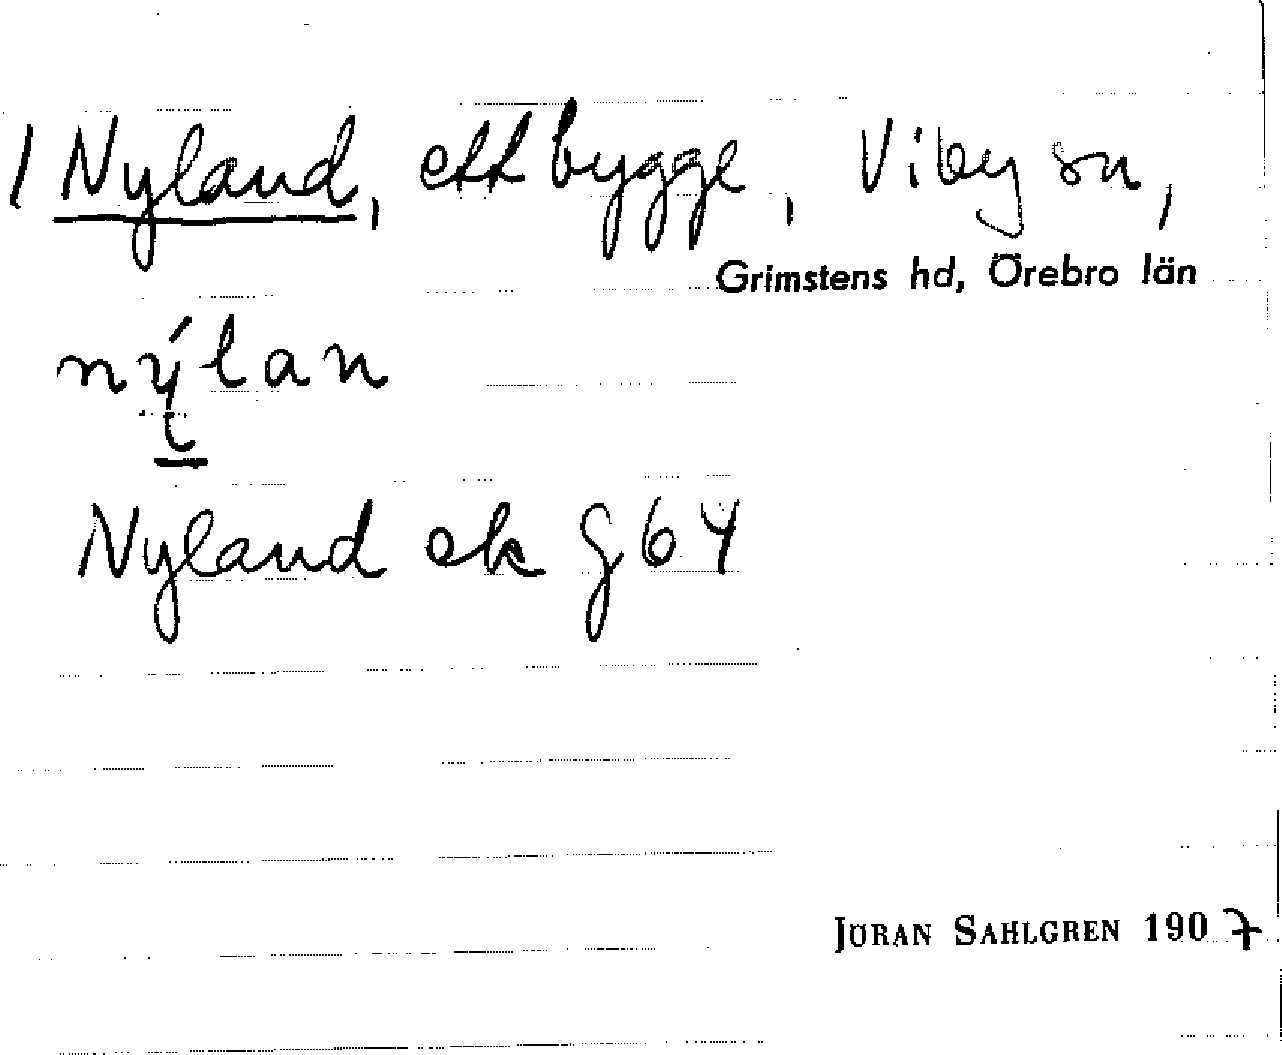 1 Nyland, ett bygge, Viby sn,
Grimstens hd, Örebro län
nýlan
Nyland ek g 64
JÖRAN SAHLGREN 1907